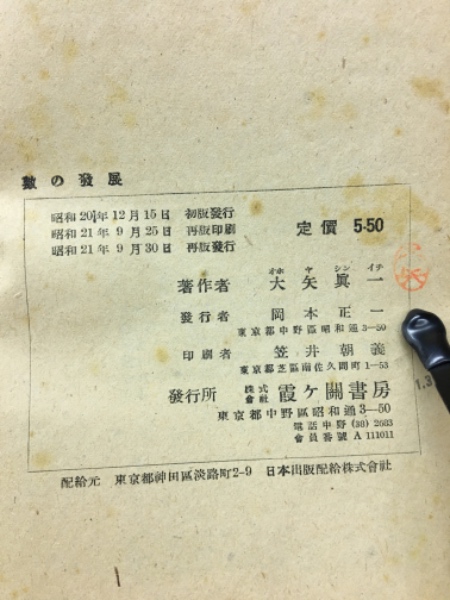 數の發展
昭和20年12月15日 初版發行
昭和21年9月25日 再版印刷
昭和21年9月30日 再版發行
定價 5.50
オホ ヤ シン イチ
著作者 大矢眞一
發行者 岡本正一
東京都中野區昭和通3—50
印刷者 笠井朝義
東京都芝區南佐久間町1—53
發行所 株式會社 霞ケ關書房
東京都中野區昭和通3—50
電話中野(38)2683
會員番號A111011
配給元 東京都神田區淡路町2-9 日本出版配給株式會社
1.3